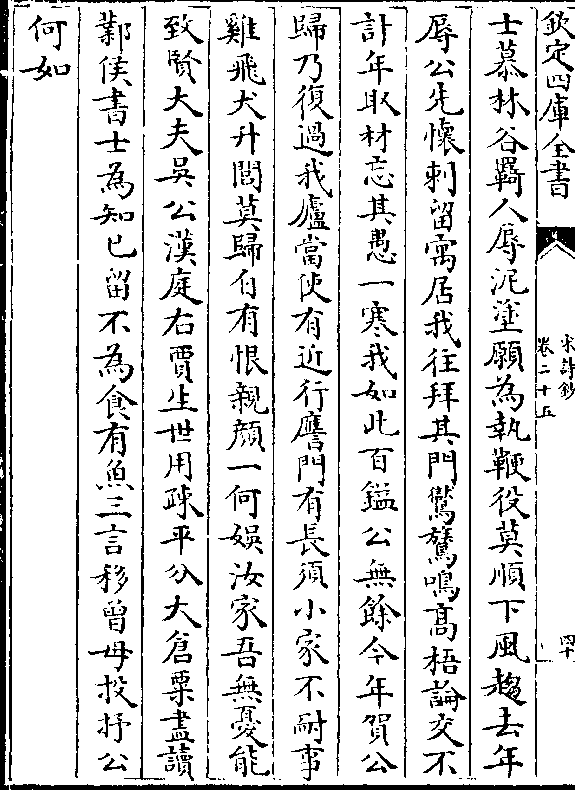 欽定四庫全書
宋詩鈔
卷二十五
四十
士慕林谷羇人辱泥塗願為執鞭役莫順下風趨去年
辱公先懷刺留寓居我往拜其門鸑鷟鳴高梧論交不
計年取材忘其愚一寒我如此百鎰公無餘今年賀公
歸乃復過我廬當使有近行譍門有長須小家不耐事
雞飛犬升閭莫歸白有恨親顔一何娯汝家吾無憂能
致賢大夫吳公漢庭右賈生世用疎平分大倉粟盡讀
鄴侯書士為知已留不為食有魚三言移曾母投抒公
何如